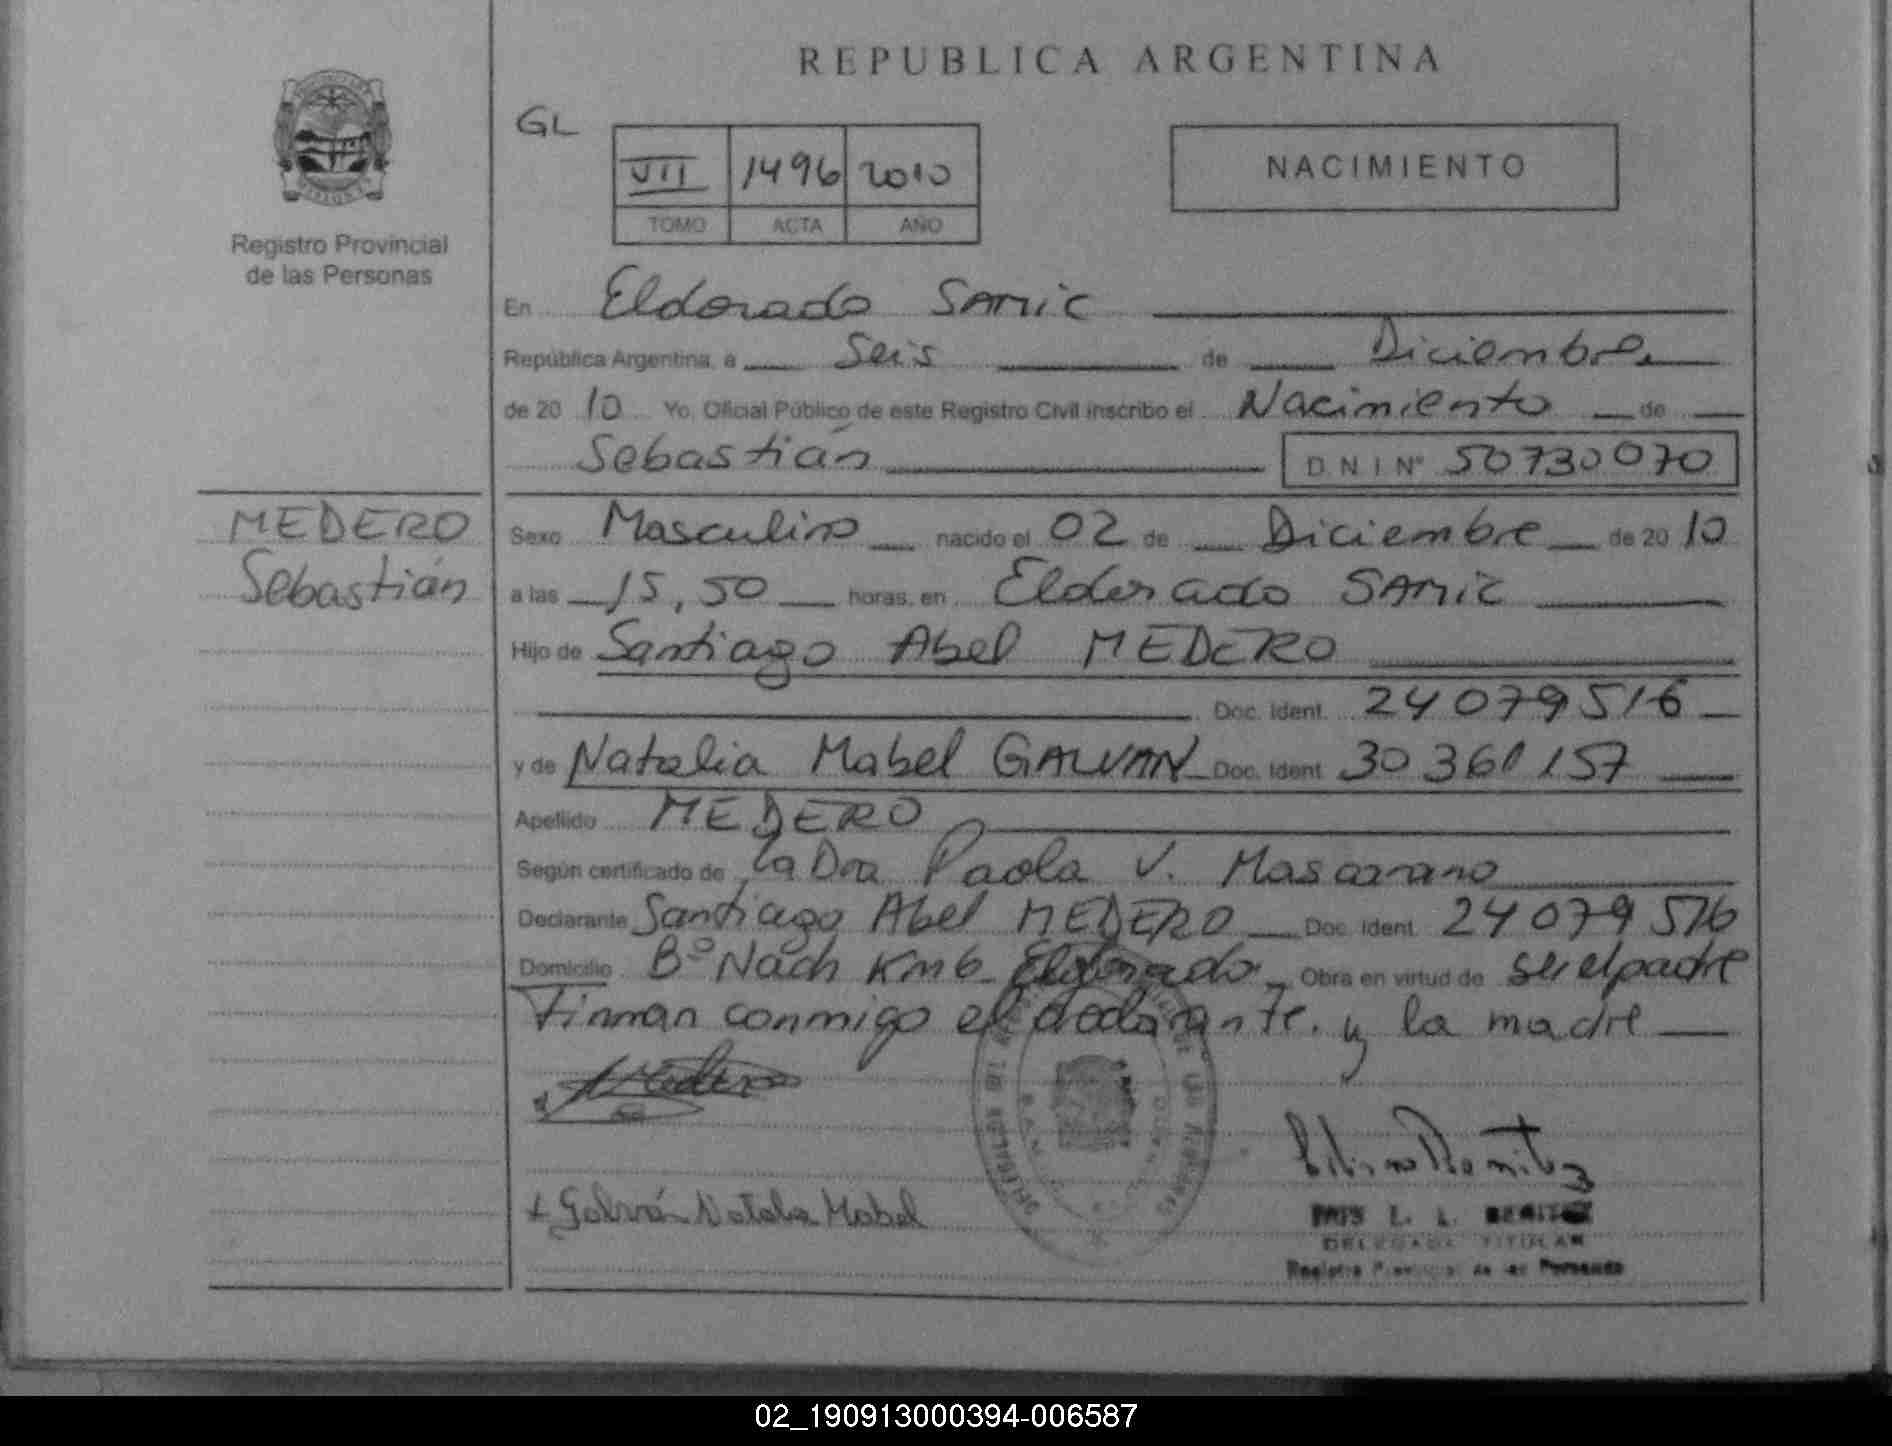 REPUBLICA ARGENTINA
GL
VII 1496 2010
TOMO ACTA AÑO
NACIMIENTO
Registro Provincial
de las Personas
En Eldorado SAMIC
República Argentina, a Seis de Diciembre
de 20 10 Yo, Oficial Público de este Registro Civil inscribo el Nacimiento de
Sebastián D N I Nº 50730070
MEDERO
Sebastián
Sexo Masculino nacido el 02 de Diciembre de 20 10
a las 15,50 horas, en Eldorado SAMIC
Hijo de Santiago Abel MEDERO
Doc. Ident. 24079516
y de Natalia Mabel GALVAN Doc. Ident. 30360157
Apellido MEDERO
Según certificado de la Dra Paola V.
Declarante Santiago Abel MEDERO Doc. Ident. 24079516
Domicilio Bº Nach Km 6 Eldorado Obra en virtud de ser el padre
Firman conmigo el declarante. y la madre
Medero
x Galván Natalia Mabel
L. L. BENITEZ
DELEGADA TITULAR
Registro Provincial de las Personas
02_190913000394-006587